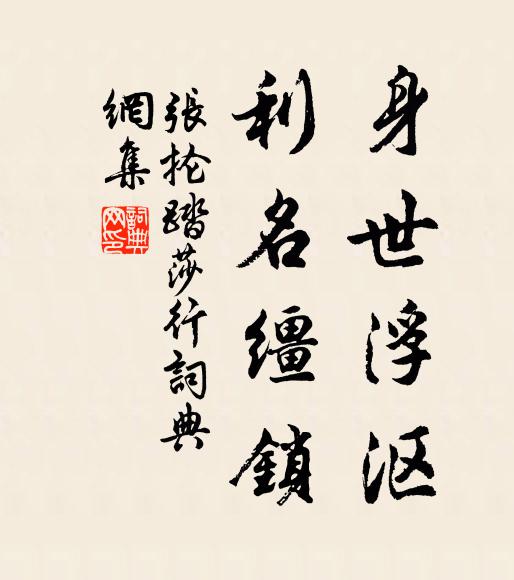 身世浮沤
利名缰鎖
張掄踏莎行詞典
網集
詞典
网印